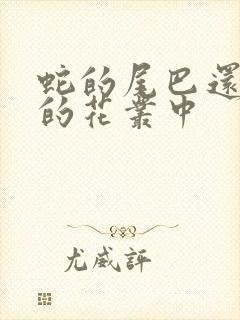 蛇的尾巴還
的花叢中
尤威評